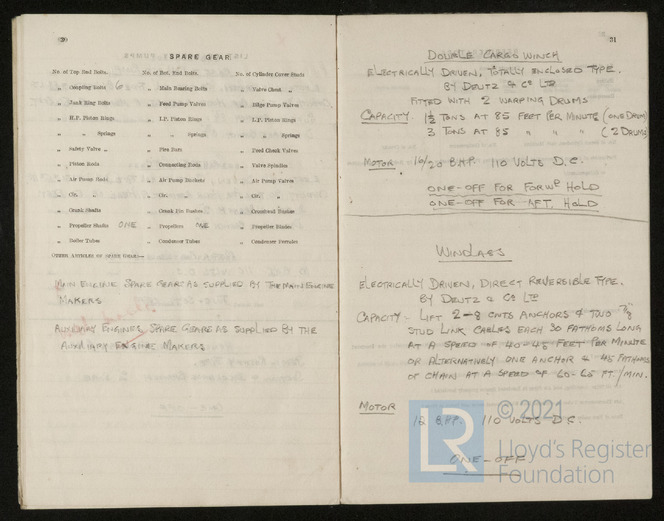 30
SPARE GEAR.
No. of Top End Bolts. No. of Bot. End Bolts. No. of Cylinder Cover Studs
„ Coupling Bolts 6 „ Main Bearing Bolts „ Valve Chest „
„ Junk Ring Bolts „ Feed Pump Valves „ Bilge Pump Valves
„ H.P. Piston Rings „ I.P. Piston Rings „ L.P. Piston Rings
„ „ Springs „ „ Springs „ „ Springs
„ Safety Valve „ „ Fire Bars „ Feed Check Valves
„ Piston Rods „ Connecting Rods „ Valve Spindles
„ Air Pump Rods „ Air Pump Buckets „ Air Pump Valves
„ Cir. „ „ Cir. „ „ Cir. „
„ Crank Shafts „ Crank Pin Bushes „ Crosshead Bushes
„ Propeller Shafts ONE „ Propellers ONE „ Propeller Blades
„ Boiler Tubes „ Condenser Tubes „ Condenser Ferrules
OTHER ARTICLES OF SPARE GEAR:—
MAIN ENGINE SPARE GEAR AS SUPPLIED BY THE MAIN ENGINE
MAKERS
AUXILIARY ENGINES, SPARE GEAR AS SUPPLIED BY THE
AUXILIARY ENGINE MAKERS
31
DOUBLE CARGO WINCH
ELECTRICALLY DRIVEN, TOTALLY ENCLOSED TYPE.
BY DEUTZ & Co LTD
FITTED WITH 2 WARPING DRUMS
CAPACITY. 1½ TONS AT 85 FEET PER MINUTE (ONE DRUM)
3 TONS AT 85 „ „ „ (2 DRUMS)
MOTOR 10/20 B.H.P. 110 VOLTS D.C.
ONE-OFF FOR FORWD HOLD
ONE-OFF FOR AFT. HOLD
WINDLASS
ELECTRICALLY DRIVEN, DIRECT REVERSIBLE TYPE.
BY DEUTZ & Co LTD
CAPACITY. LIFT 2-8 CWTS ANCHORS & TWO 7/8
STUD LINK CABLES EACH 30 FATHOMS LONG
AT A SPEED OF 40-45 FEET PER MINUTE
OR ALTERNATIVELY ONE ANCHOR & 45 FATHOMS
OF CHAIN AT A SPEED OF 60-65 FT./MIN.
MOTOR
12 B.H.P. 110 VOLTS D.C.
ONE-OFF
LR © 2021
Lloyd's Register
Foundation